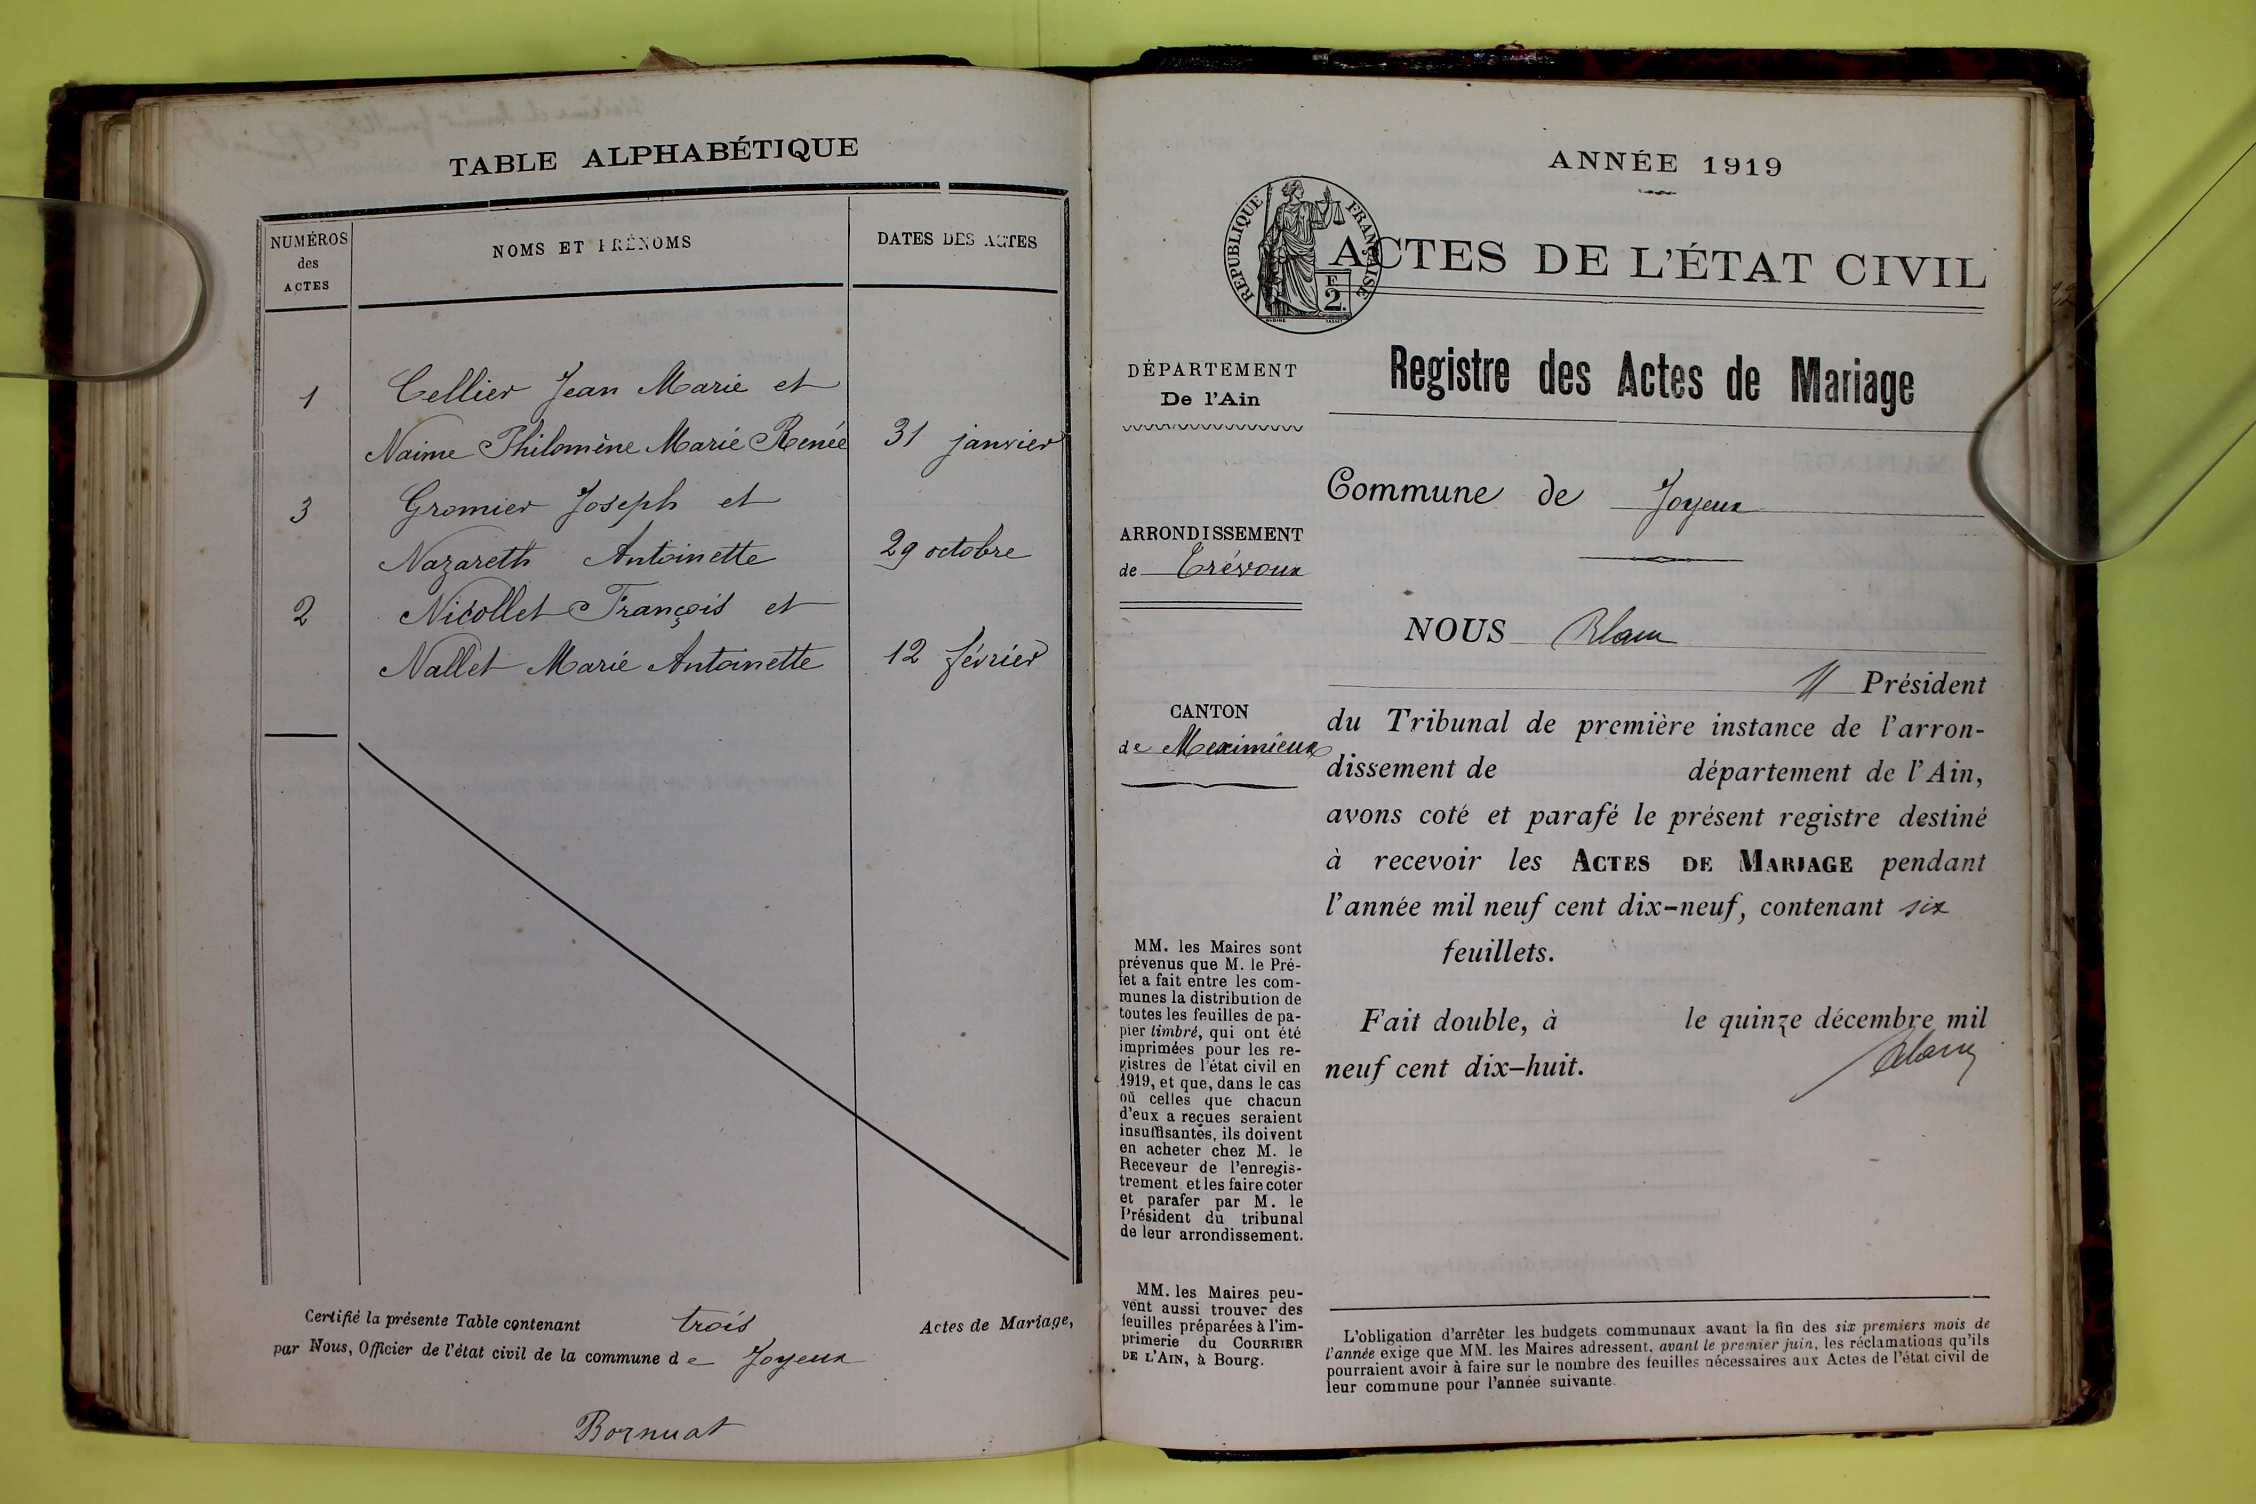 TABLE ALPHABÉTIQUE
NUMÉROS
des
ACTES
NOMS ET PRÉNOMS
DATES DES ACTES
1
Cellier Jean Marie et
Naime Philomène Marie Renée
31 janvier
3
Gromier Joseph et
Nazareth Antoinette
29 octobre
2
Nicollet François et
Nallet Marie Antoinette
12 février
Certifié la présente Table contenant trois Actes de Mariage,
par Nous, Officier de l'état civil de la commune de Joyeux
Bornuat
ANNÉE 1919
RÉPUBLIQUE FRANÇAISE
F
2.
ACTES DE L'ÉTAT CIVIL
Registre des Actes de Mariage
DÉPARTEMENT
De l'Ain
Commune de Joyeux
ARRONDISSEMENT
de Trévoux
CANTON
de Meximieux
NOUS
Président
du Tribunal de première instance de l'arron-
dissement de département de l'Ain,
avons coté et parafé le présent registre destiné
à recevoir les ACTES DE MARIAGE pendant
l'année mil neuf cent dix-neuf, contenant six
feuillets.
Fait double, à le quinze décembre mil
neuf cent dix-huit.
MM. les Maires sont
prévenus que M. le Pré-
fet a fait entre les com-
munes la distribution de
toutes les feuilles de pa-
pier timbré, qui ont été
imprimées pour les re-
gistres de l'état civil en
1919, et que, dans le cas
où celles que chacun
d'eux a reçues seraient
insuffisantes, ils doivent
en acheter chez M. le
Receveur de l'enregis-
trement et les faire coter
et parafer par M. le
Président du tribunal
de leur arrondissement.
MM. les Maires peu-
vent aussi trouver des
feuilles préparées à l'im-
primerie du COURRIER
DE L'AIN, à Bourg.
L'obligation d'arrêter les budgets communaux avant la fin des six premiers mois de
l'année exige que MM. les Maires adressent, avant le premier juin, les réclamations qu'ils
pourraient avoir à faire sur le nombre des feuilles nécessaires aux Actes de l'état civil de
leur commune pour l'année suivante.